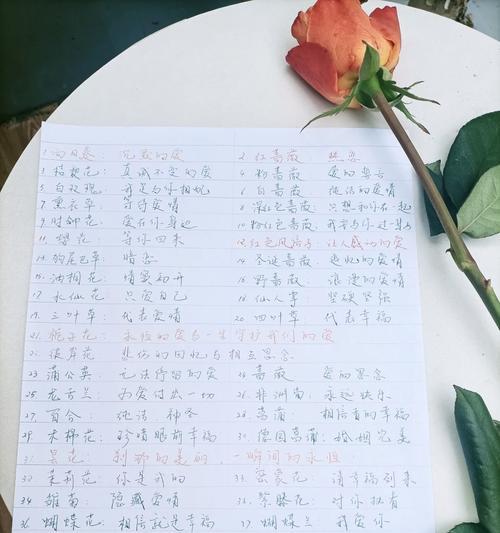 1 向日葵：沉默的爱 2 红蔷薇：热恋
3 桔梗花：真诚不变的爱 4 粉蔷薇：爱的誓言
5 白玫瑰：我足与你相配 6 白蔷薇：纯洁的爱情
7 薰衣草：等待爱情 8 深红色蔷薇：只想和你在一起
9 时钟花：爱在你身边 10 粉红色蔷薇：我要与你过一辈子
11 樱花：等你回来 12 红色风信子：让人感动的爱
13 狗尾巴草：暗恋 14 圣诞蔷薇：追忆的爱情
15 油桐花：情窦初开 16 野蔷薇：浪漫的爱情
17 水仙花：只爱自己 18 仙人掌：坚硬坚强
19 三叶草：代表爱情 20 四叶草：代表幸福
21 栀子花：永恒的爱与一生守护我们的爱
22 彼岸花：悲伤的回忆与相互思念
23 蒲公英：无法停留的爱 24 蔷薇 爱的思念
25 龙舌兰：为爱付出一切 26 非洲菊：永远快乐
27 百合：纯洁、神圣 28 菖蒲：相信者的幸福
29 木棉花：珍惜眼前幸福 30 德国菖蒲：婚姻完美
31 昙花：刹那的美丽，一瞬间的永恒
32 茉莉花：你是我的 33 密蒙花：请幸福到来
34 雏菊：隐藏爱情 35 紫藤花：对你执着
36 蝴蝶花：相信就是幸福 37 蝴蝶兰：我爱你